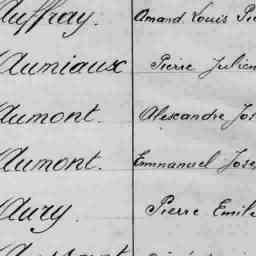 Auffray. Amand Louis
Aumiaux Pierre Julien
Aumont. Alexandre
Aumont. Emmanuel
Aury. Pierre Emile